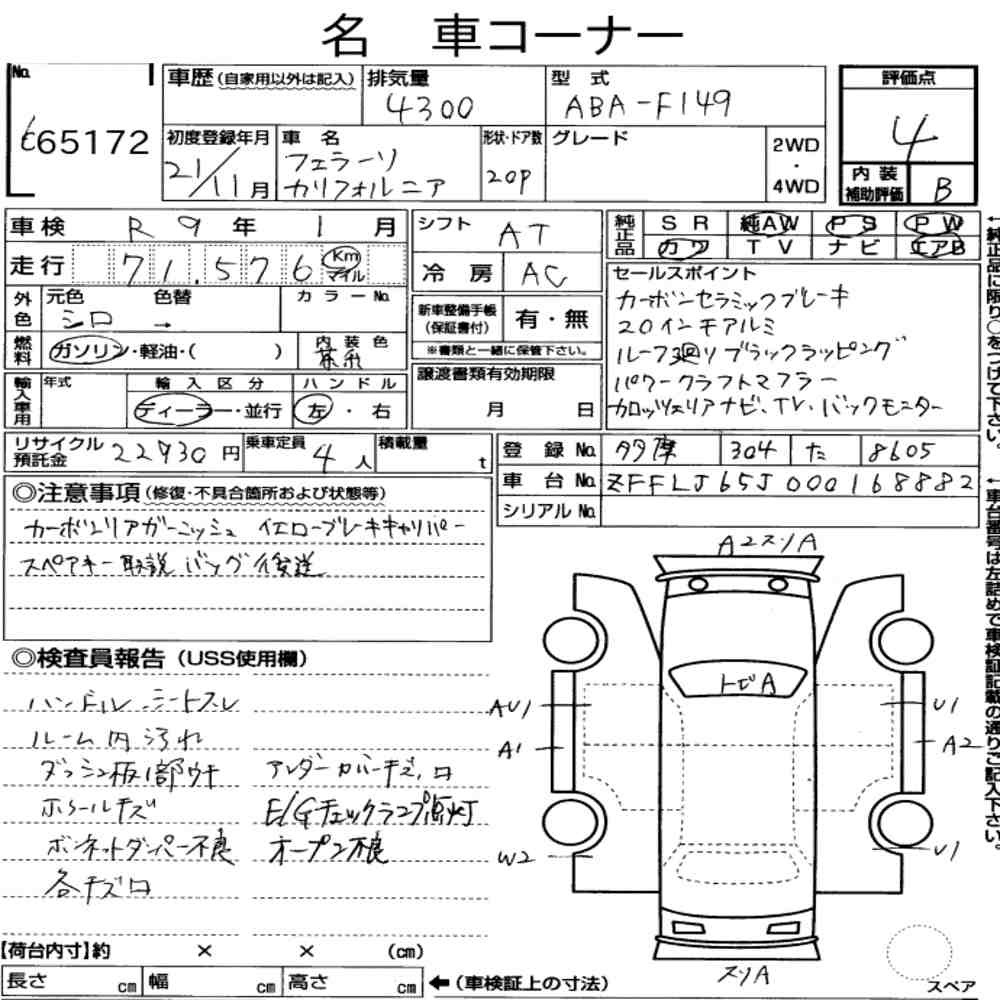 名 車コーナー
No. 65172
車歴(自家用以外は記入) 排気量 4300 型式 ABA-F149
初度登録年月 21/11月 車名 フェラーリ カリフォルニア 形状・ドア数 20P グレード 2WD・4WD
評価点 4
内装補助評価 B
車検 R9年1月 シフト AT
走行 71,576 Km マイル 冷房 AC
純正品 SR 純AW PS PW
カワ TV ナビ エアB
外色 元色 シロ 色替 → カラーNo.
燃料 ガソリン・軽油・( ) 内装色 茶系
新車整備手帳(保証書付) 有・無
※書類と一緒に保管下さい。
輸入車用 年式 輸入区分 ディーラー・並行 ハンドル 左・右
譲渡書類有効期限 月 日
セールスポイント
カーボンセラミックブレーキ
20インチアルミ
ルーフ廻りブラックラッピング
パワークラフトマフラー
カロッツェリアナビ、TV、バックモニター
リサイクル預託金 22930円 乗車定員 4人 積載量 t
登録No. 多摩 304 た 8605
車台No. ZFFLJ65J000168882
シリアルNo.
◎注意事項(修復・不具合箇所および状態等)
カーボンリアガーニッシュ イエローブレーキキャリパー
スペアキー 取説 バッグ後送
◎検査員報告(USS使用欄)
ハンドル シートスレ
ルーム内汚れ
ダッシュ板1部ウキ アンダーカバーキズ、ワ
ホイールキズ E/Gチェックランプ点灯
ボンネットダンパー不良 オープン不良
各キズワ
A2スリA
トビA
AU1 U1
A1 A2
W2 U1
スリA
スペア
【荷台内寸】約 × × (cm)
長さ cm 幅 cm 高さ cm ←(車検証上の寸法)
←純正品に限り○をつけて下さい。
←車台番号は左詰めで車検証記載の通りご記入下さい。